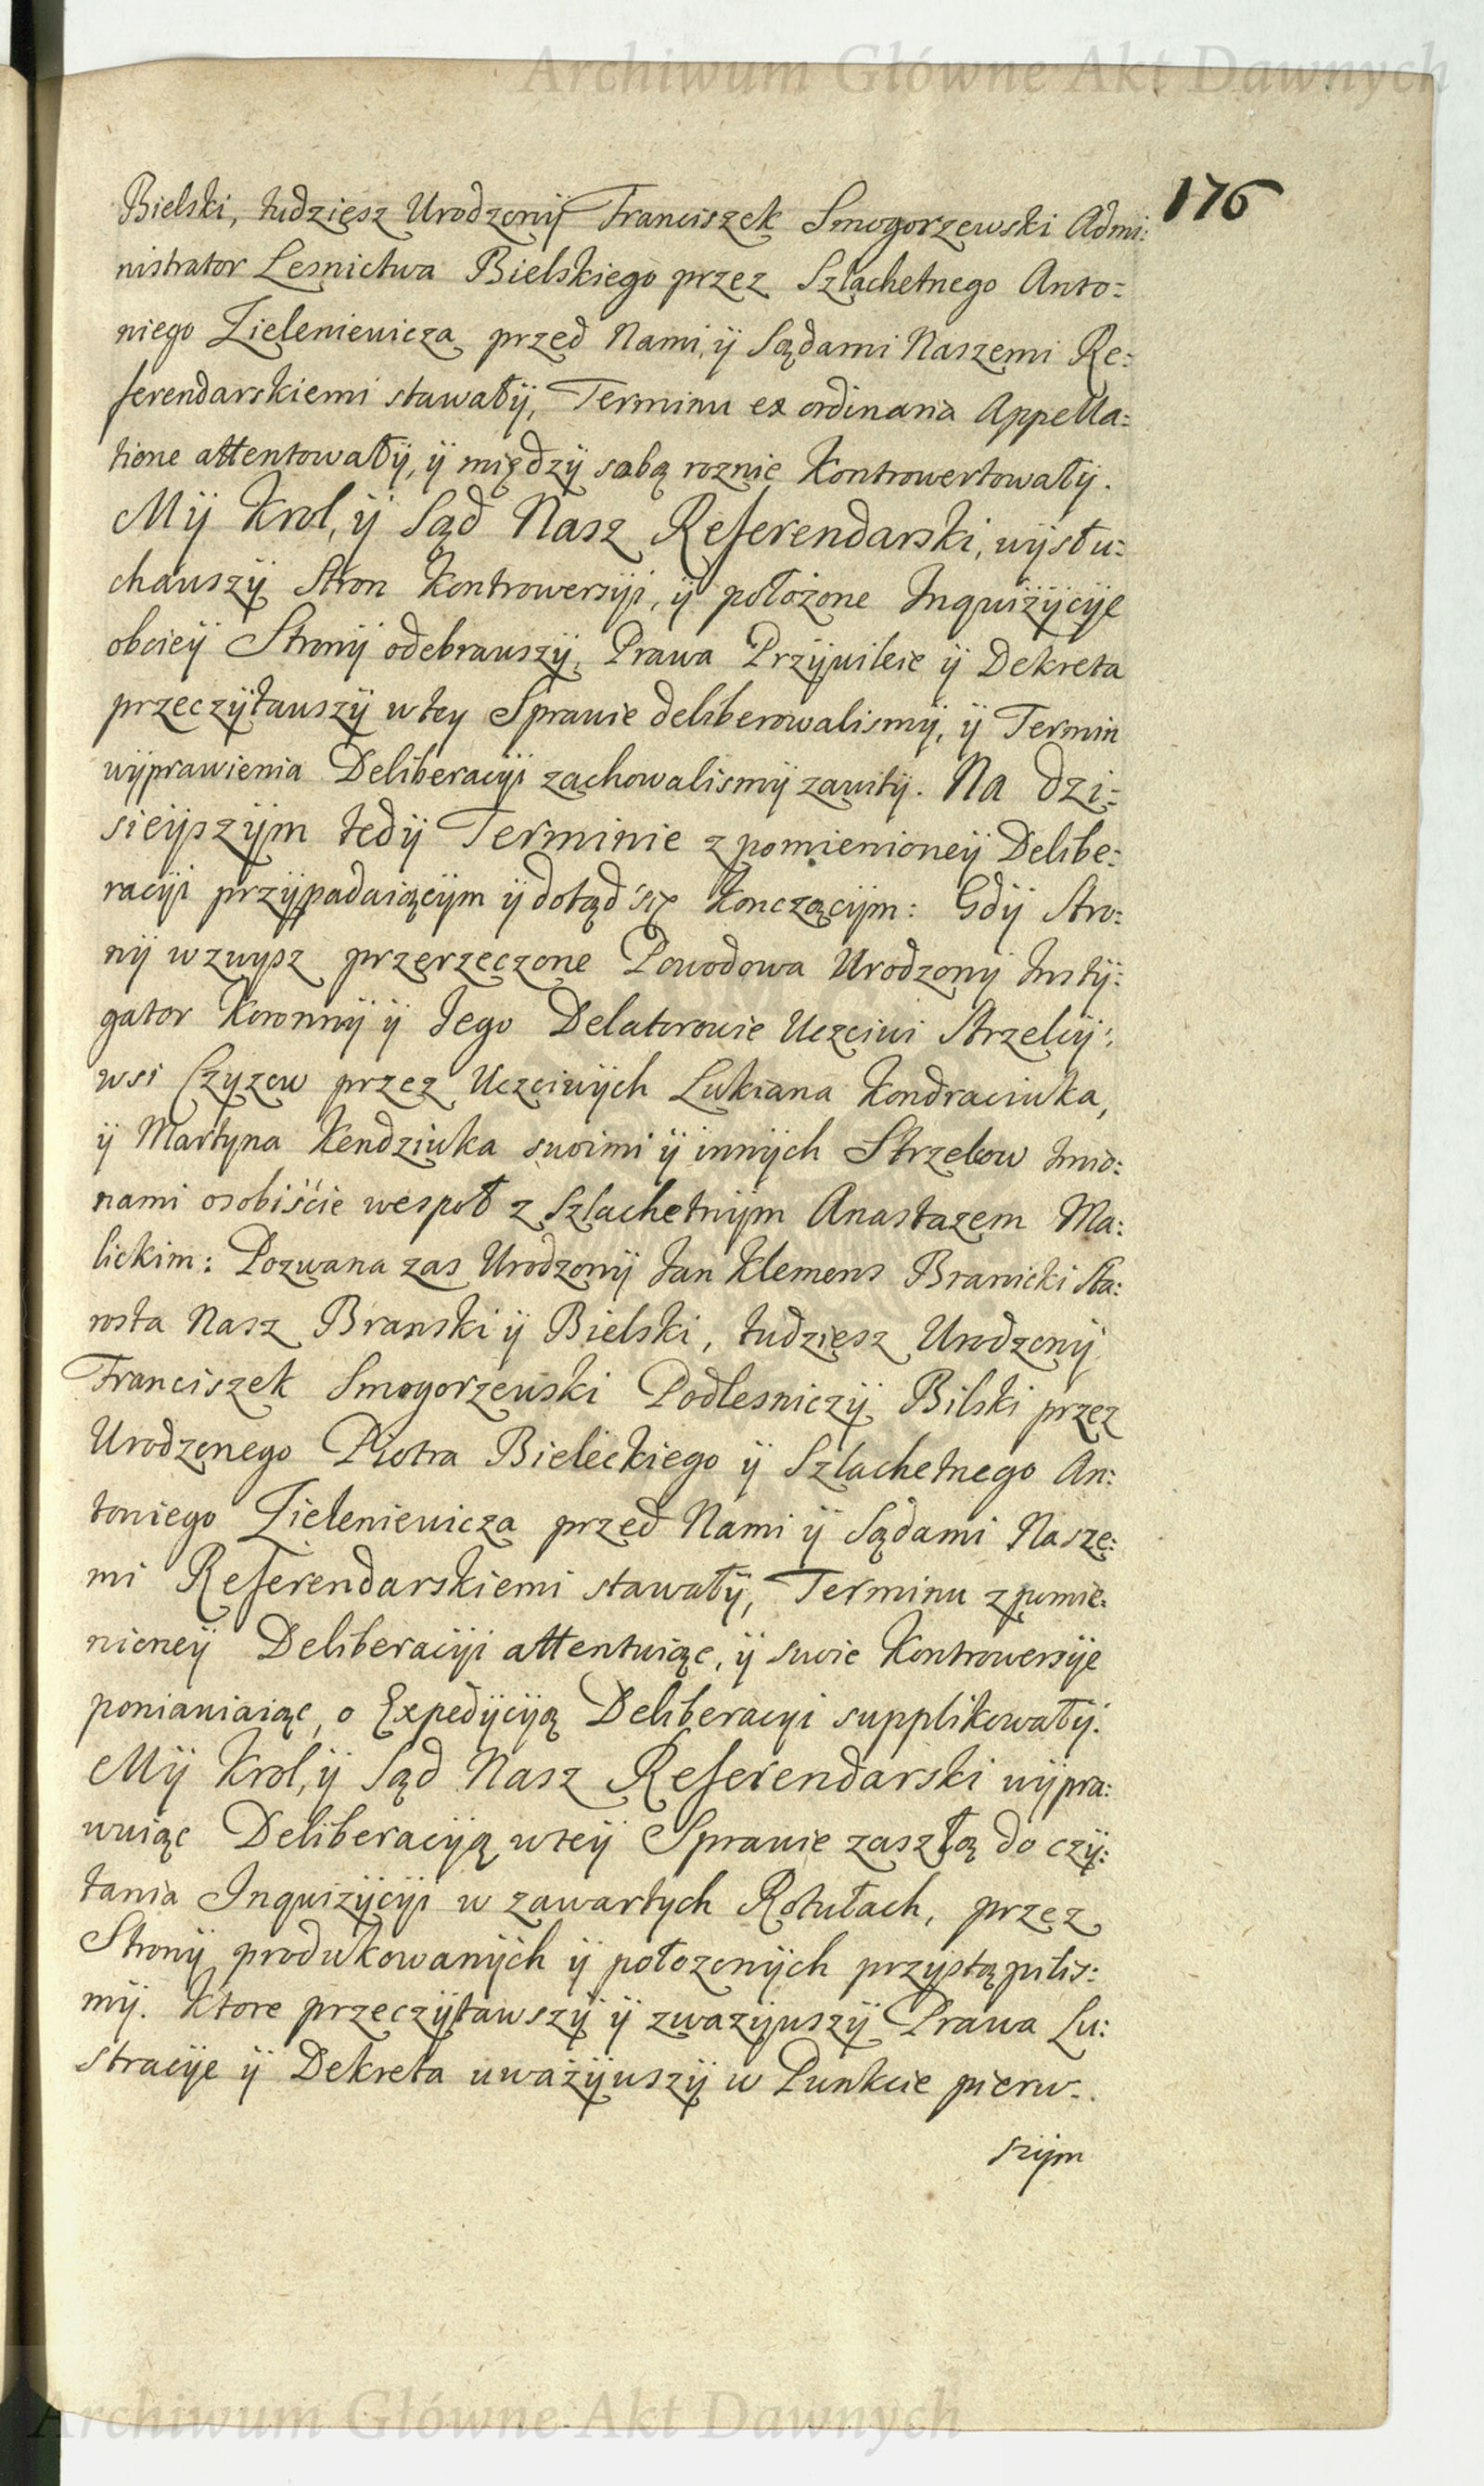 Archiwum Główne Akt Dawnych
176
Bielski, tudziesz Urodzonÿ Franciszek Smogorzewski Admi:
nistrator Lesnictwa Bielskiego przez Szlachetnego Anto:
niego Zieleniewicza przed Nami, ÿ Sądami Naszemi Re:
ferendarskiemi stawałÿ, Terminu ex ordinaria Appella:
tione attentowałÿ, ÿ międzÿ sobą roznie Kontrowertowałÿ.
Mÿ Krol, ÿ Sąd Nasz Referendarski, wÿsłu:
chawszÿ Stron Kontrowersÿi, ÿ położone Inquizÿcÿe
oboieÿ Stronÿ odebrawszÿ, Prawa Przÿwileie ÿ Dekreta
przeczÿtawszÿ w tey Sprawie deliberowalismÿ, ÿ Termin
wÿprawienia Deliberacÿi zachowalismÿ zawitÿ. Na dzi:
sieÿszÿm tedÿ Terminie z pomienioneÿ Delibe:
racÿi przÿpadaiącÿm ÿ dotąd się konczącÿm: Gdÿ Stro:
nÿ wzwysz przerzeczone Powodowa Urodzonÿ Instÿ:
gator Koronnÿ ÿ Jego Delatorowie Uczciwi Strzelcÿ
wsi Czyzew przez Uczciwÿch Lukiana Kondraciuka,
ÿ Martyna Kendziuka swoimi ÿ innÿch Strzelcow Imio:
nami osobiście wespoł z Szlachetnÿm Anastazem Ma:
lickim: Pozwana zas Urodzonÿ Jan Klemens Branicki Sta:
rosta Nasz Branski ÿ Bielski, tudziesz Urodzonÿ
Franciszek Smogorzewski Podlesniczÿ Bilski przez
Urodzonego Piotra Bieleckiego ÿ Szlachetnego An:
toniego Zieleniewicza przed Nami ÿ Sądami Nasze:
mi Referendarskiemi stawałÿ, Terminu z pomie:
nioneÿ Deliberacÿi attentuiąc, ÿ swoie Kontrowersÿe
ponawiaiąc, o Expedÿcÿą Deliberacyi supplikowałÿ.
Mÿ Krol, ÿ Sąd Nasz Referendarski wÿpra:
wuiąc Deliberacÿą w teÿ Sprawie zaszłą do czÿ:
tania Inquizÿcÿi w zawartych Rotułach, przez
Stronÿ produkowanÿch ÿ położonÿch przÿstąpilis:
mÿ. Ktore przeczÿtawszÿ ÿ zwazÿwszÿ Prawa Lu:
stracÿe ÿ Dekreta uważÿwszÿ w Punkcie pierw:
szÿm
Archiwum Główne Akt Dawnych